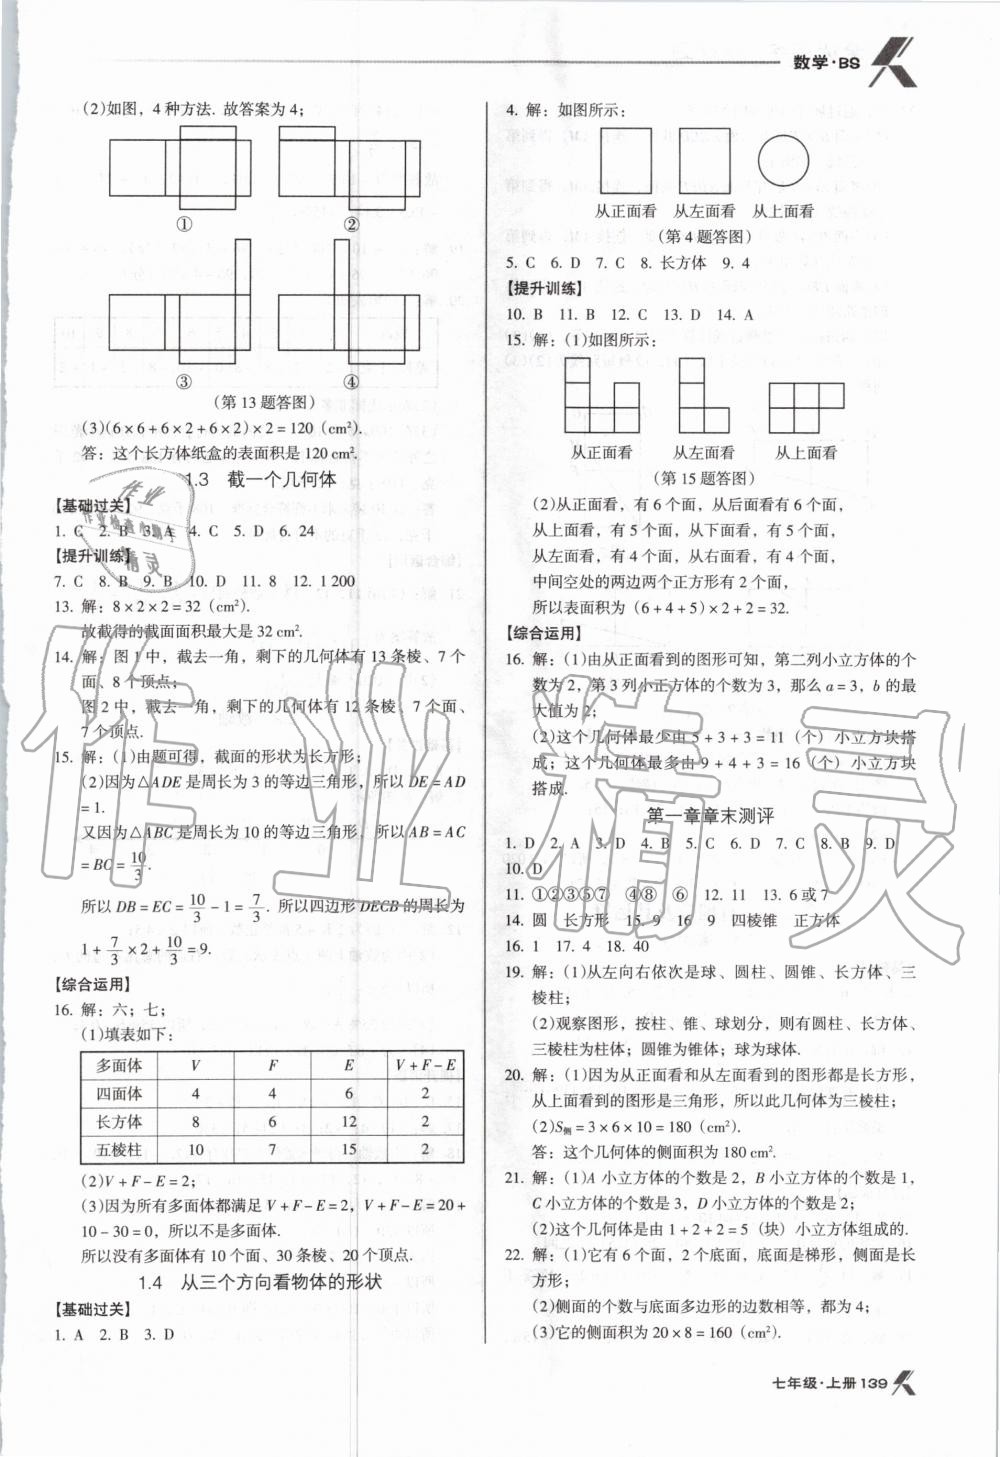 数学·BS
(2)如图，4种方法. 故答案为4；
① ②
③ ④
(第13题答图)
(3)(6×6+6×2+6×2)×2=120 (cm²).
答：这个长方体纸盒的表面积是120 cm².
1.3 截一个几何体
【基础过关】
1. C 2. B 3. A 4. C 5. D 6. 24
【提升训练】
7. C 8. B 9. B 10. D 11. 8 12. 1 200
13. 解：8×2×2=32 (cm²).
故截得的截面面积最大是32 cm².
14. 解：图1中，截去一角，剩下的几何体有13条棱、7个
面、8个顶点；
图2中，截去一角，剩下的几何体有12条棱、7个面、
7个顶点.
15. 解：(1)由题可得，截面的形状为长方形；
(2)因为△ADE是周长为3的等边三角形，所以DE=AD
=1.
又因为△ABC是周长为10的等边三角形，所以AB=AC
=BC=10/3.
所以DB=EC=10/3-1=7/3. 所以四边形DECB的周长为
1+7/3×2+10/3=9.
【综合运用】
16. 解：六；七；
(1)填表如下：
多面体 V F E V+F-E
四面体 4 4 6 2
长方体 8 6 12 2
五棱柱 10 7 15 2
(2)V+F-E=2；
(3)因为所有多面体都满足V+F-E=2，V+F-E=20+
10-30=0，所以不是多面体.
所以没有多面体有10个面、30条棱、20个顶点.
1.4 从三个方向看物体的形状
【基础过关】
1. A 2. B 3. D
4. 解：如图所示：
从正面看 从左面看 从上面看
(第4题答图)
5. C 6. D 7. C 8. 长方体 9. 4
【提升训练】
10. B 11. B 12. C 13. D 14. A
15. 解：(1)如图所示：
从正面看 从左面看 从上面看
(第15题答图)
(2)从正面看，有6个面，从后面看有6个面，
从上面看，有5个面，从下面看，有5个面，
从左面看，有4个面，从右面看，有4个面，
中间空处的两边两个正方形有2个面，
所以表面积为(6+4+5)×2+2=32.
【综合运用】
16. 解：(1)由从正面看到的图形可知，第二列小立方体的个
数为2，第3列小正方体的个数为3，那么a=3，b的最
大值为2；
(2)这个几何体最少由5+3+3=11（个）小立方块搭
成；这个几何体最多由9+4+3=16（个）小立方块
搭成.
第一章章末测评
1. D 2. A 3. D 4. B 5. C 6. D 7. C 8. B 9. D
10. D
11. ①②③⑤⑦ ④⑧ ⑥ 12. 11 13. 6或7
14. 圆 长方形 15. 9 16 9 四棱锥 正方体
16. 1 17. 4 18. 40
19. 解：(1)从左向右依次是球、圆柱、圆锥、长方体、三
棱柱；
(2)观察图形，按柱、锥、球划分，则有圆柱、长方体、
三棱柱为柱体；圆锥为锥体；球为球体.
20. 解：(1)因为从正面看和从左面看到的图形都是长方形，
从上面看到的图形是三角形，所以此几何体为三棱柱；
(2)S侧=3×6×10=180 (cm²).
答：这个几何体的侧面积为180 cm².
21. 解：(1)A小立方体的个数是2，B小立方体的个数是1，
C小立方体的个数是3，D小立方体的个数是2；
(2)这个几何体是由1+2+2=5（块）小立方体组成的.
22. 解：(1)它有6个面，2个底面，底面是梯形，侧面是长
方形；
(2)侧面的个数与底面多边形的边数相等，都为4；
(3)它的侧面积为20×8=160 (cm²).
七年级·上册139
作业精灵